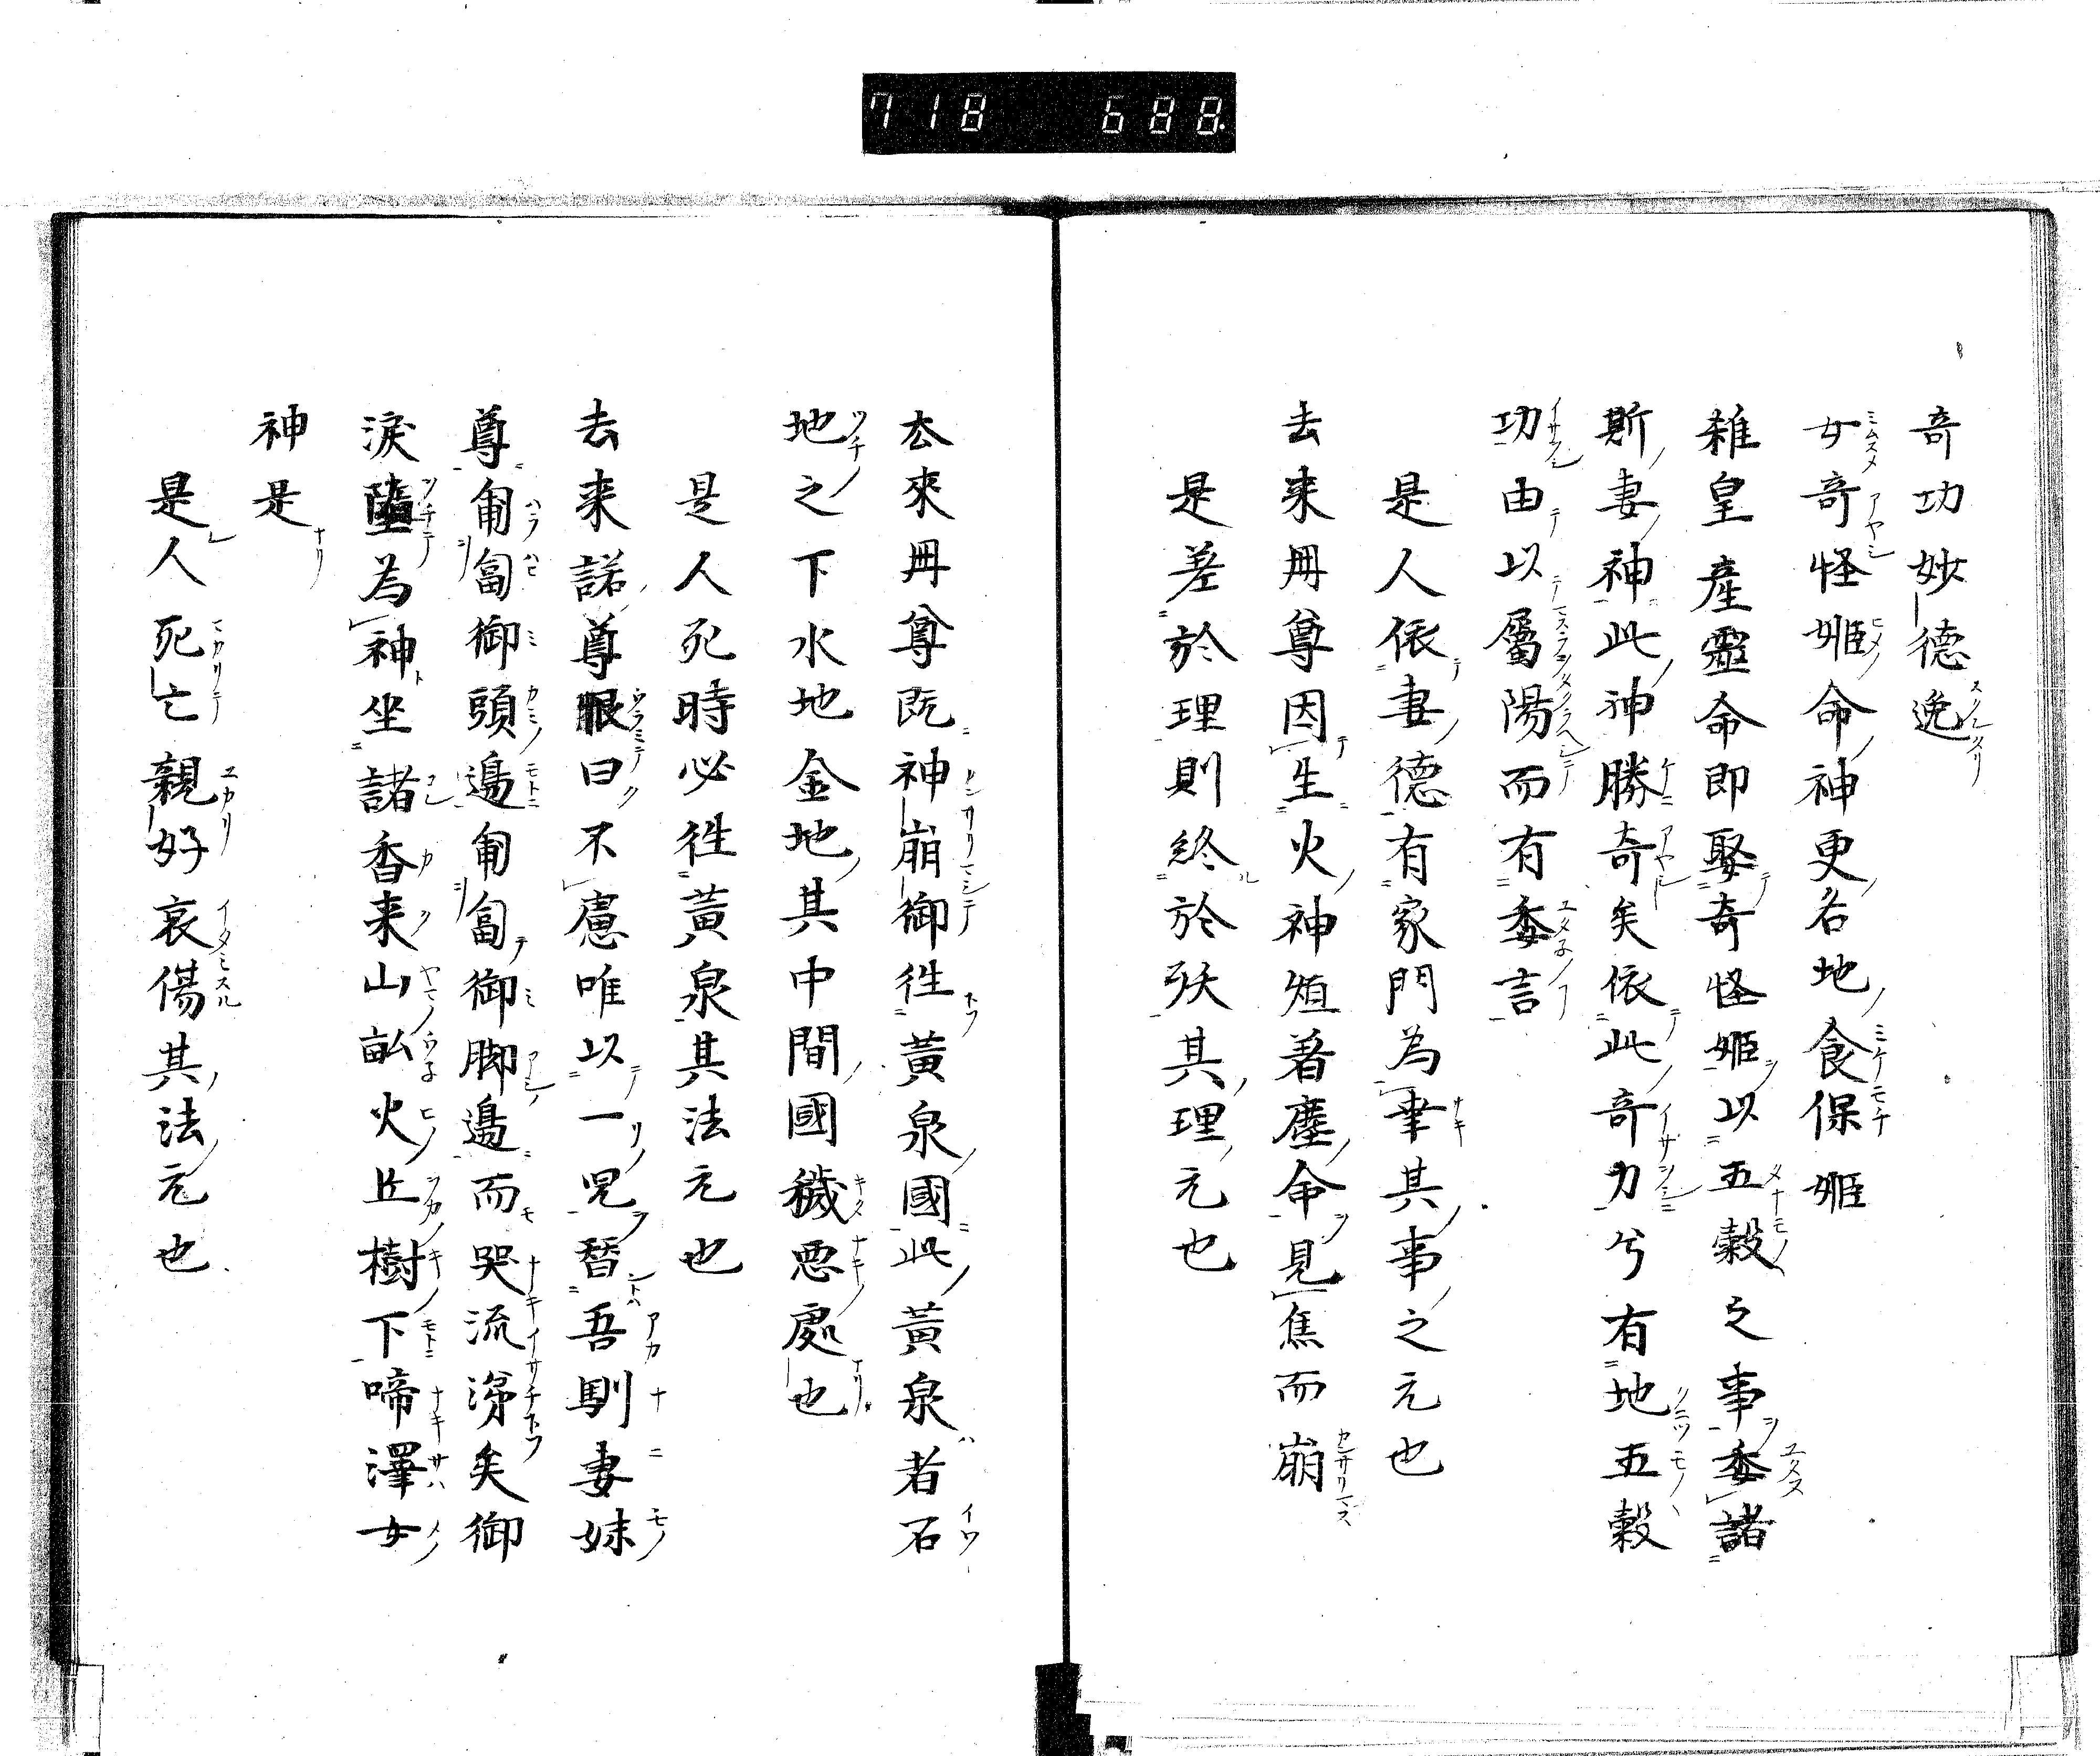 718 688.
奇功妙德逸
女奇怪姫命神更名地食保姫
雑皇産靈命即娶奇怪姫以五穀之事委諸
斯妻神此神勝奇矣依此奇力兮有地五穀
功由以屬陽而有委言
是人依妻德有家門為聿其事之元也
去来冊尊因生火神烜着塵命見焦而崩
是差於理則終於殀其理元也
去來冊尊既神崩御徃黃泉國此黃泉者石
地之下水地金地其中間國穢惡處也
是人死時必徃黃泉其法元也
去来諾尊恨曰不慮唯以一児替吾馴妻妹
尊匍匐御頭邉匍匐御脚邉而哭流涕矣御
淚墮為神坐諸香来山畝火丘樹下啼澤女
神是
是人死亡親好哀傷其法元也